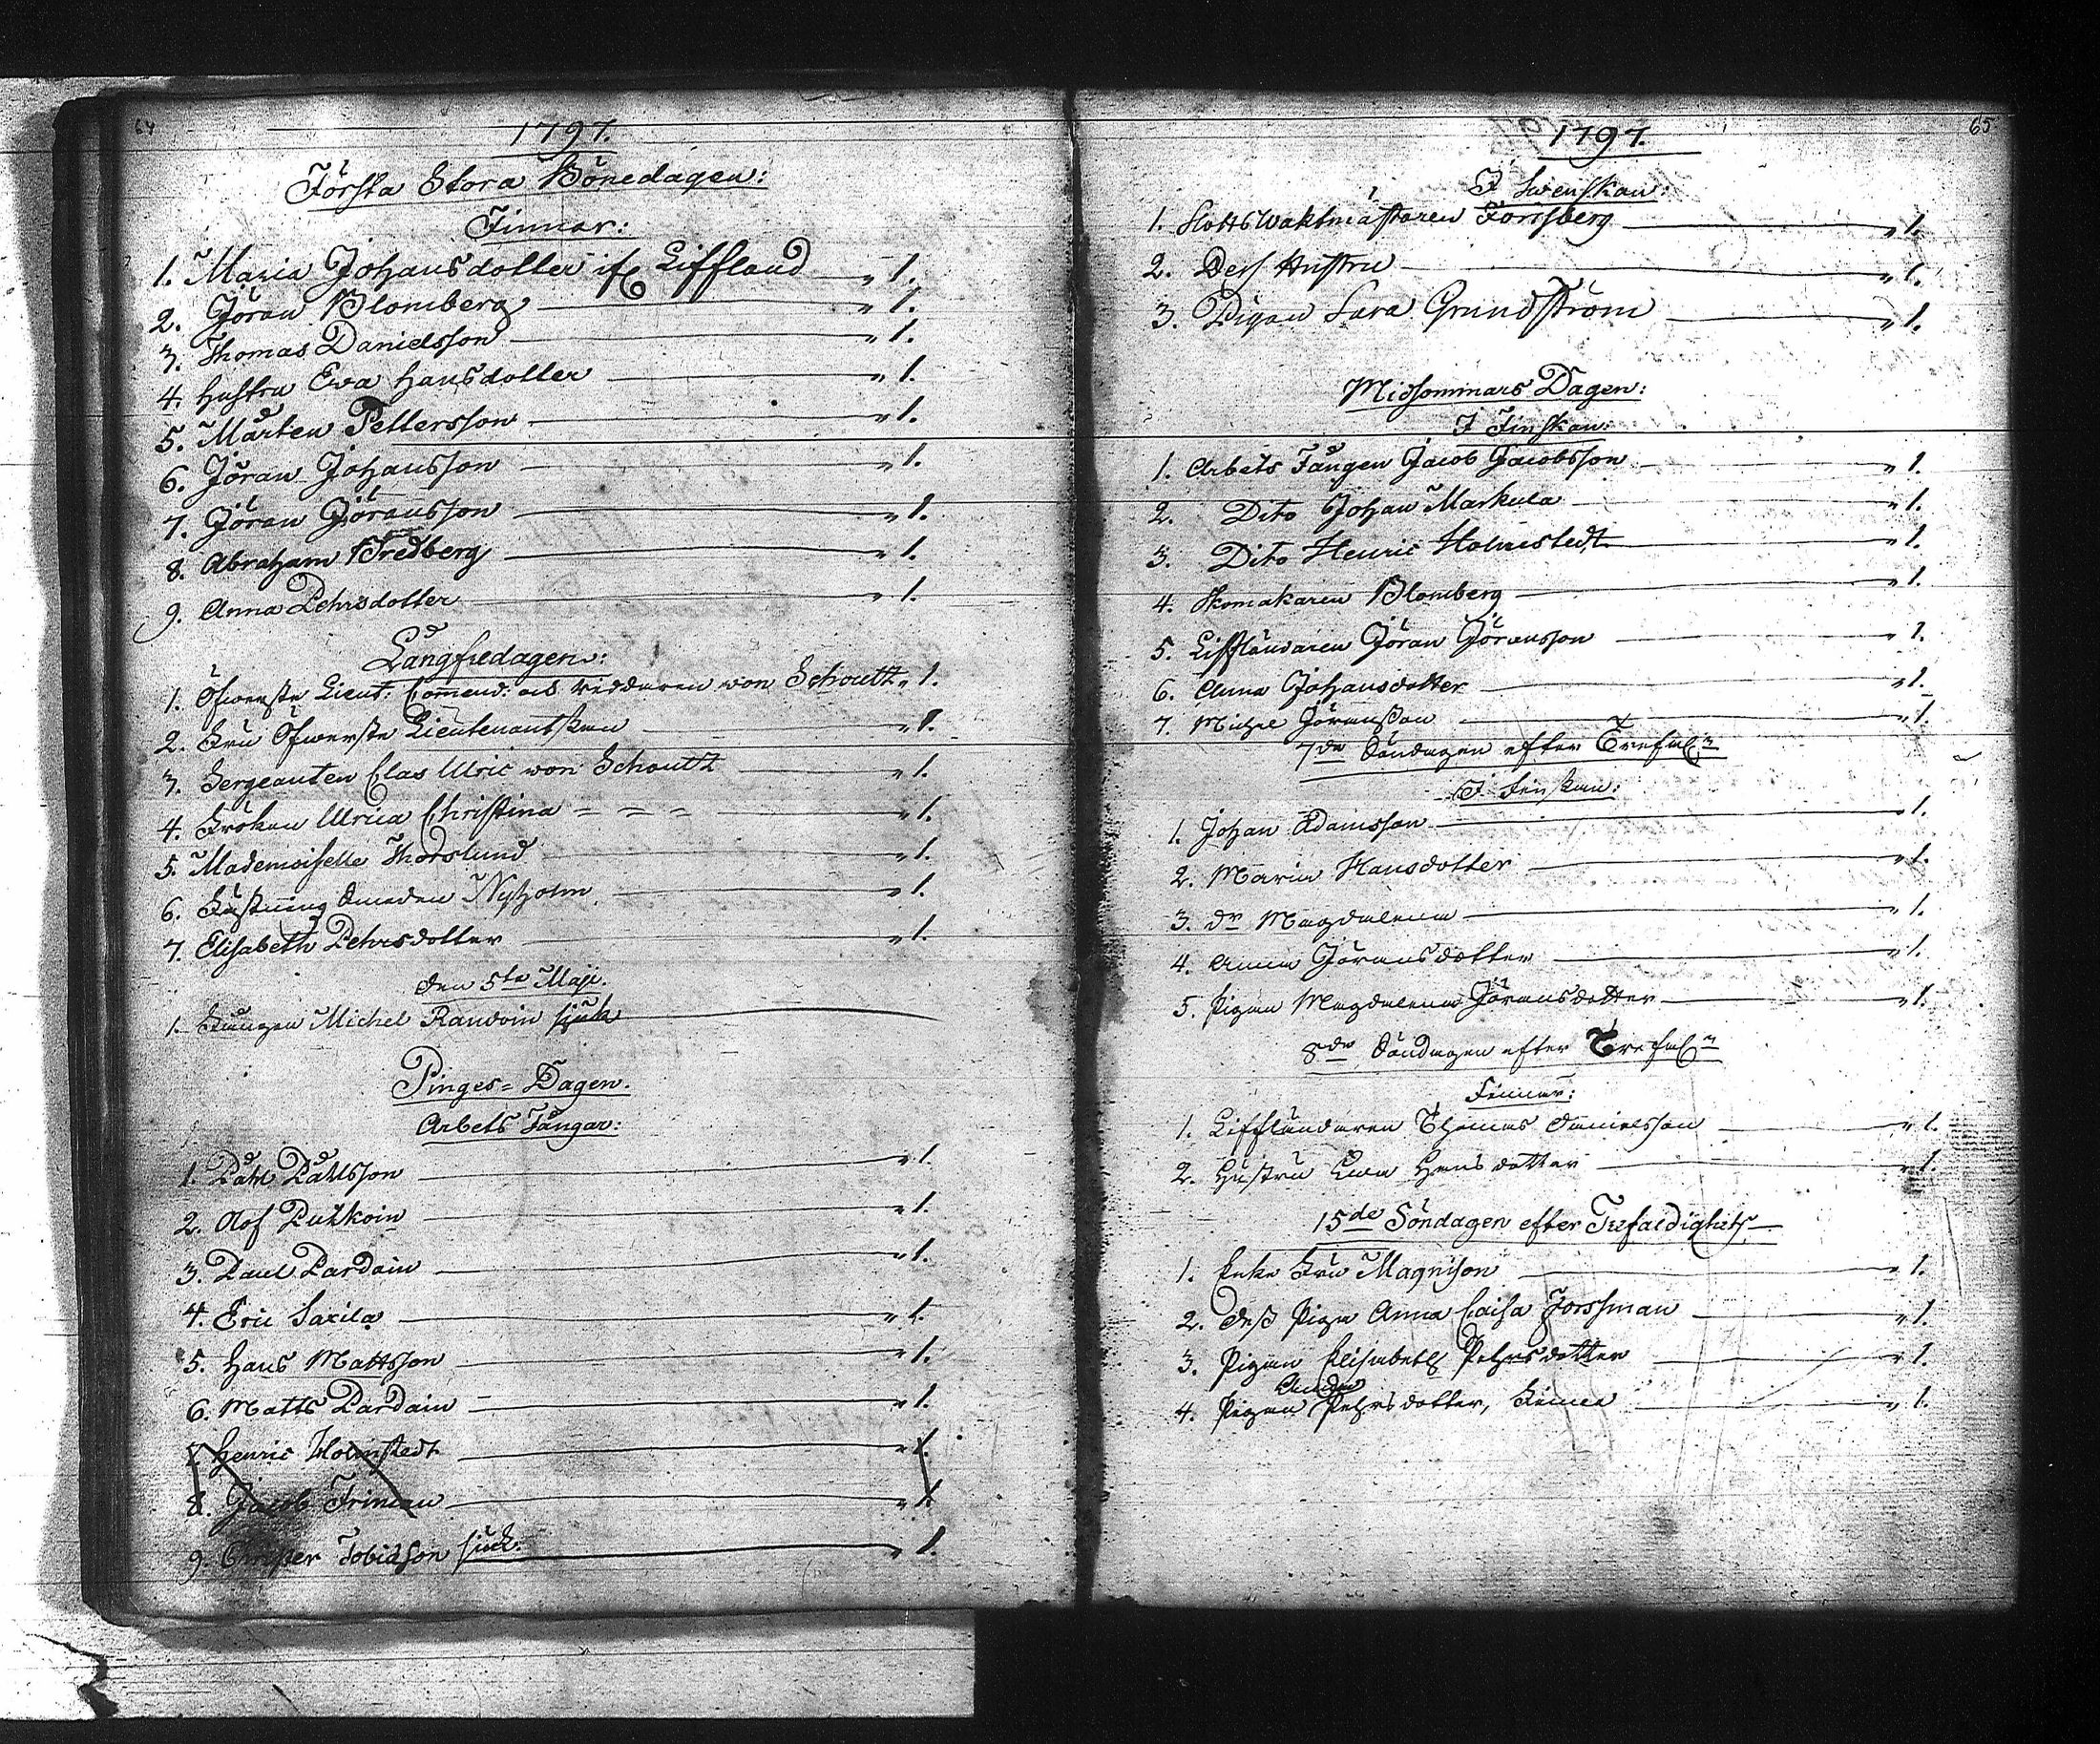 64
1797.
Första Stora Bönedagen:
Finnar:
1. Maria Johansdotter if Liffland „ 1.
2. Jöran Blomberg „ 1.
3. Thomas Danielsson „ 1.
4. Hustru Eva Hansdotter „ 1.
5. Mårten Pettersson „ 1.
6. Jöran Johansson „ 1.
7. Jöran Jöransson „ 1.
8. Abraham Bredberg „ 1.
9. Anna Pehrsdotter „ 1.
Långfredagen:
1. Öfwerste Lieut: Commend: och Riddaren von Schoultz „ 1.
2. Fru Öfwerste Lieutenantskan „ 1.
3. Sergeanten Clas Ulric von Schoultz „ 1.
4. Fröken Ulrica Christina = = = „ 1.
5. Mademoiselle Thorslund „ 1.
6. Fästning Smeden Nyholm „ 1.
7. Elisabeth Pehrsdotter „ 1.
den 5te Maji.
1. Fången Michel Randoin sjuk
Pinges = Dagen.
Arbets Fångar:
1. Påhl Påhlsson „ 1.
2. Olof Putkoin „ 1.
3. Paul Pardain „ 1.
4. Eric Saxila „ 1.
5. Hans Mattsson „ 1.
6. Matts Pardain „ 1.
7. Henric Holmstedt „ 1.
8. Jacob Friman „ 1.
9. Christer Tobiasson sjuk: „ 1.
65
1797.
I Swenskan:
1. Slotts Waktmästaren Forssberg „ 1.
2. Dess Hustru „ 1.
3. Pigan Sara Grundström „ 1.
Midsommars Dagen:
I Finskan:
1. Arbets Fången Jacob Jacobsson „ 1.
2. Dito Johan Markula „ 1.
3. Dito Henric Holmstedt „ 1.
4. Skomakaren Blomberg „ 1.
5. Liffländaren Jöran Jöransson „ 1.
6. Anna Johansdotter „ 1.
7. Michel Jöransson „ 1.
7de Söndagen efter
I Finskan:
1. Johan Adamsson „ 1.
2. Maria Hansdotter „ 1.
3. do Magdalena „ 1.
4. Anna Jöransdotter „ 1.
5. Pigan Magdalena Jöransdotter „ 1.
8de Söndagen efter
Finnar:
1. Liffländaren Thomas Danielsson „ 1.
2. Hustru Ewa Hansdotter „ 1.
15de Söndagen efter Trefaldighets
1. Enke Fru Magnison „ 1.
2. dess Piga Anna Caisa Forssman „ 1.
3. Pigan Elisabeth Pehrsdotter „ 1.
4. Pigan Pehrsdotter, „ 1.